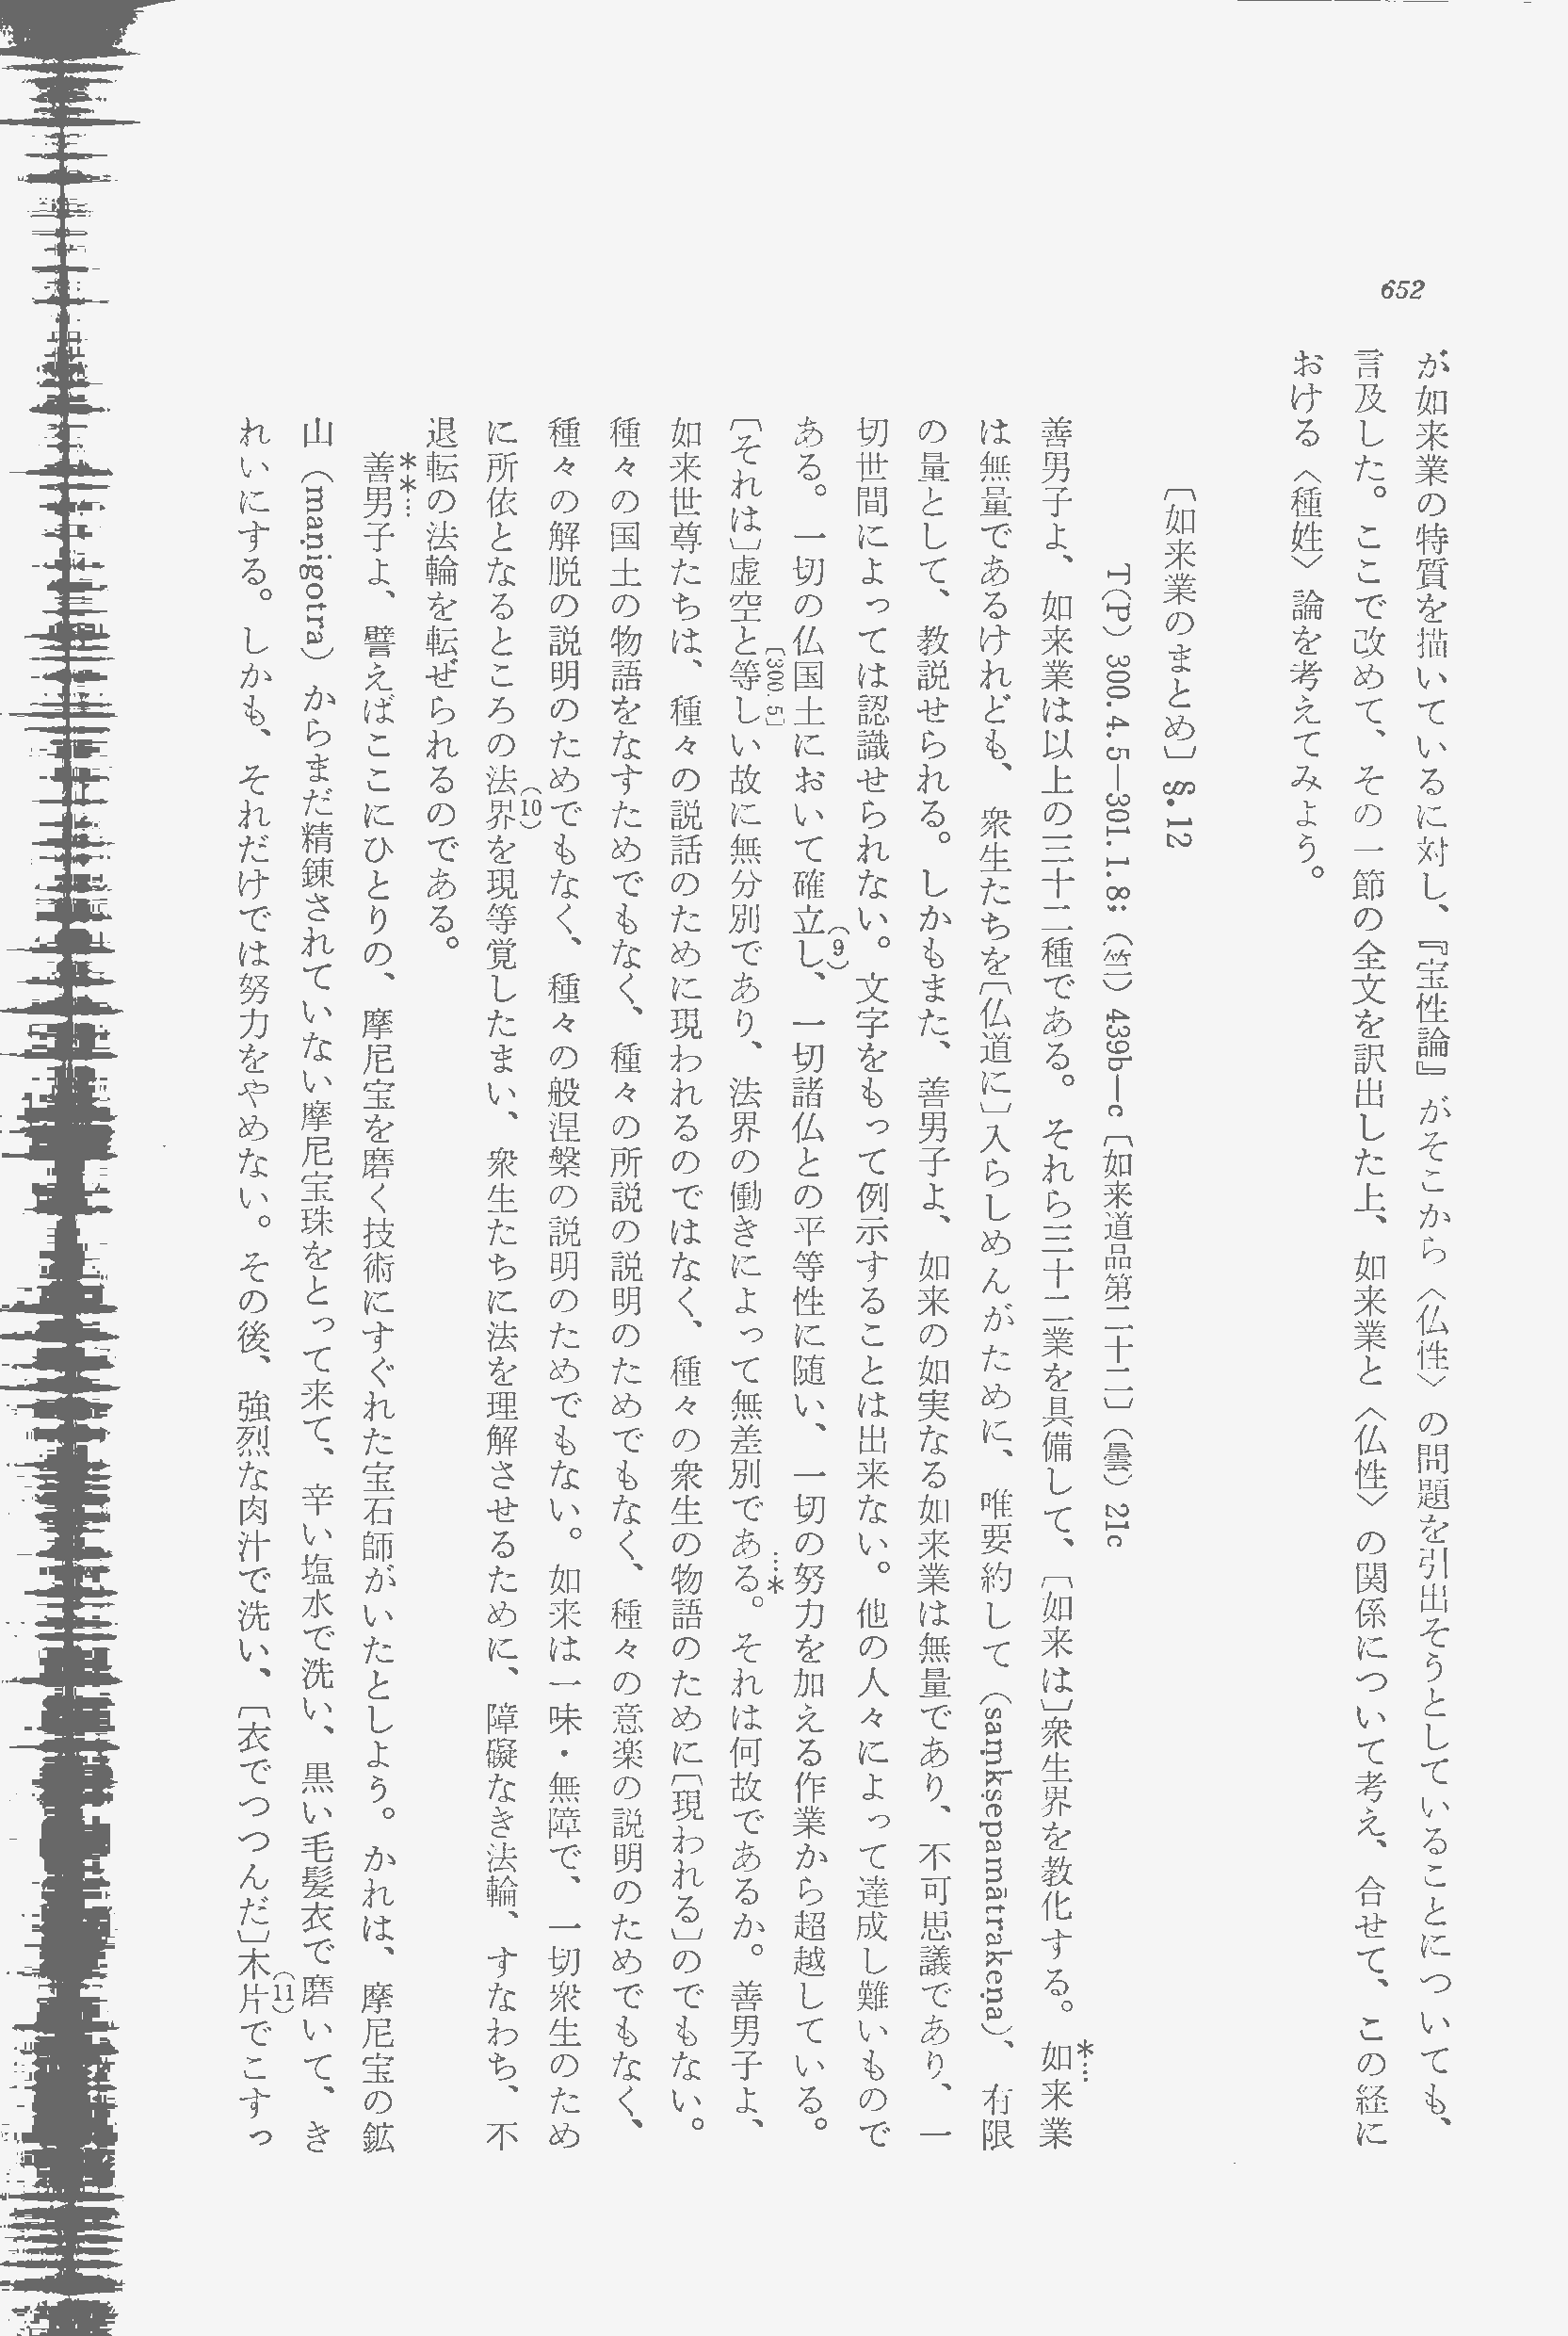 652
が如来業の特質を描いているに対し、『宝性論』がそこから〈仏性〉の問題を引出そうとしていることについても、
言及した。ここで改めて、その一節の全文を訳出した上、如来業と〈仏性〉の関係について考え、合せて、この経に
おける〈種姓〉論を考えてみよう。
〔如来業のまとめ〕§.12
T(P) 300.4.5—301.1.8;（竺）439b—c〔如来道品第二十二〕（曇）21c
善男子よ、如来業は以上の三十二種である。それら三十二業を具備して、〔如来は〕衆生界を教化する。*…如来業
は無量であるけれども、衆生たちを〔仏道に〕入らしめんがために、唯要約して（saṃkṣepamātrakeṇa）、有限
の量として、教説せられる。しかもまた、善男子よ、如来の如実なる如来業は無量であり、不可思議であり、一
切世間によっては認識せられない。文字をもって例示することは出来ない。他の人々によって達成し難いもので
ある。一切の仏国土において確立し(9)、一切諸仏との平等性に随い、一切の努力を加える作業から超越している。
〔それは〕虚空と等し[300.5]い故に無分別であり、法界の働きによって無差別である…*。それは何故であるか。善男子よ、
如来世尊たちは、種々の説話のために現われるのではなく、種々の衆生の物語のために〔現われる〕のでもない。
種々の国土の物語をなすためでもなく、種々の所説の説明のためでもなく、種々の意楽の説明のためでもなく、
種々の解脱の説明のためでもなく、種々の般涅槃の説明のためでもない。如来は一味・無障で、一切衆生のため
に所依となるところの法界(10)を現等覚したまい、衆生たちに法を理解させるために、障礙なき法輪、すなわち、不
退転の法輪を転ぜられるのである。
**…善男子よ、譬えばここにひとりの、摩尼宝を磨く技術にすぐれた宝石師がいたとしよう。かれは、摩尼宝の鉱
山（maṇigotra）からまだ精錬されていない摩尼宝珠をとって来て、辛い塩水で洗い、黒い毛髪衣で磨いて、き
れいにする。しかも、それだけでは努力をやめない。その後、強烈な肉汁で洗い、〔衣でつつんだ〕木片(11)でこすっ